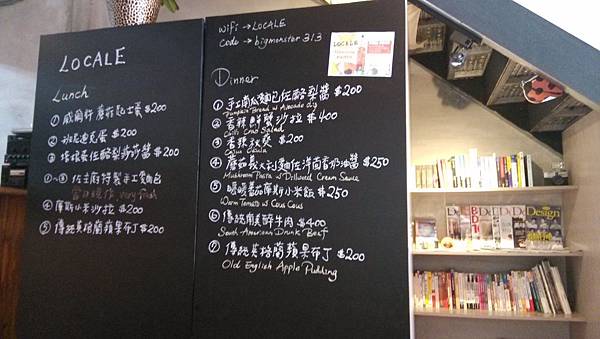 LOCALE
Lunch
① 威爾斯蘑菇起士蛋 $200
② 班尼迪克蛋 $200
③ 塔塔醬佐酪梨莎莎醬 $200
①~③ 佐主廚特製手工麵包
當日現作 very fresh
④ 摩斯小米沙拉 $200
⑤ 傳統英格蘭蘋果布丁 $200
wifi → LOCALE
code → bigmonster313
LOCALE
Dinner
① 手工南瓜麵包佐酪梨醬 $200
Pumpkin Bread w Avocado dip
② 香辣鮮蟹沙拉 $400
Crab Salad
③ 香辣秋葵 $200
④ 蘑菇義大利麵佐洋茴香奶油醬 $250
Mushroom Pasta w Dillweed Cream Sauce
⑤ 暖暖蕃茄摩斯小米飯 $250
Warm Tomato w Cous Cous
⑥ 傳統南美醉牛肉 $400
South American Drunk Beef
⑦ 傳統英格蘭蘋果布丁 $200
Old English Apple Pudding
Design